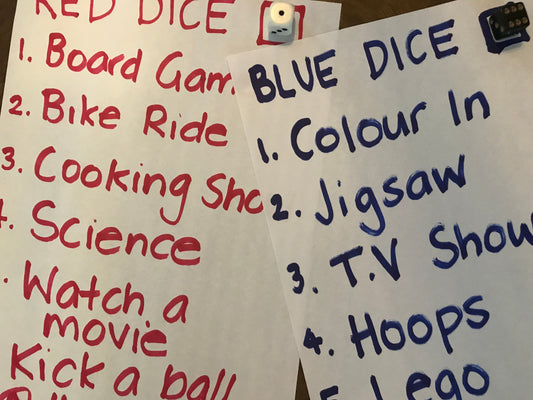 RED DICE
1. Board Gam
2. Bike Ride
3. Cooking Sho
4. Science
Watch a
movie
Kick a ball
BLUE DICE
1. Colour In
2. Jigsaw
3. T.V Show
4. Hoops
5. Lego